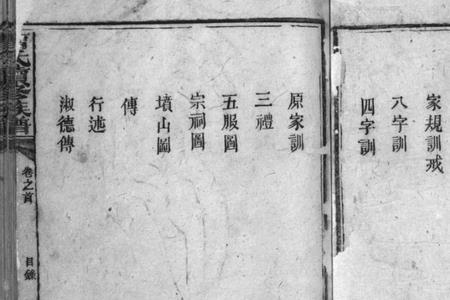 家規訓戒
八字訓
四字訓
原家訓
三禮
五服圖
宗祠圖
墳山圖
傳
行述
淑德傳
氏續修族譜
卷之首
目錄